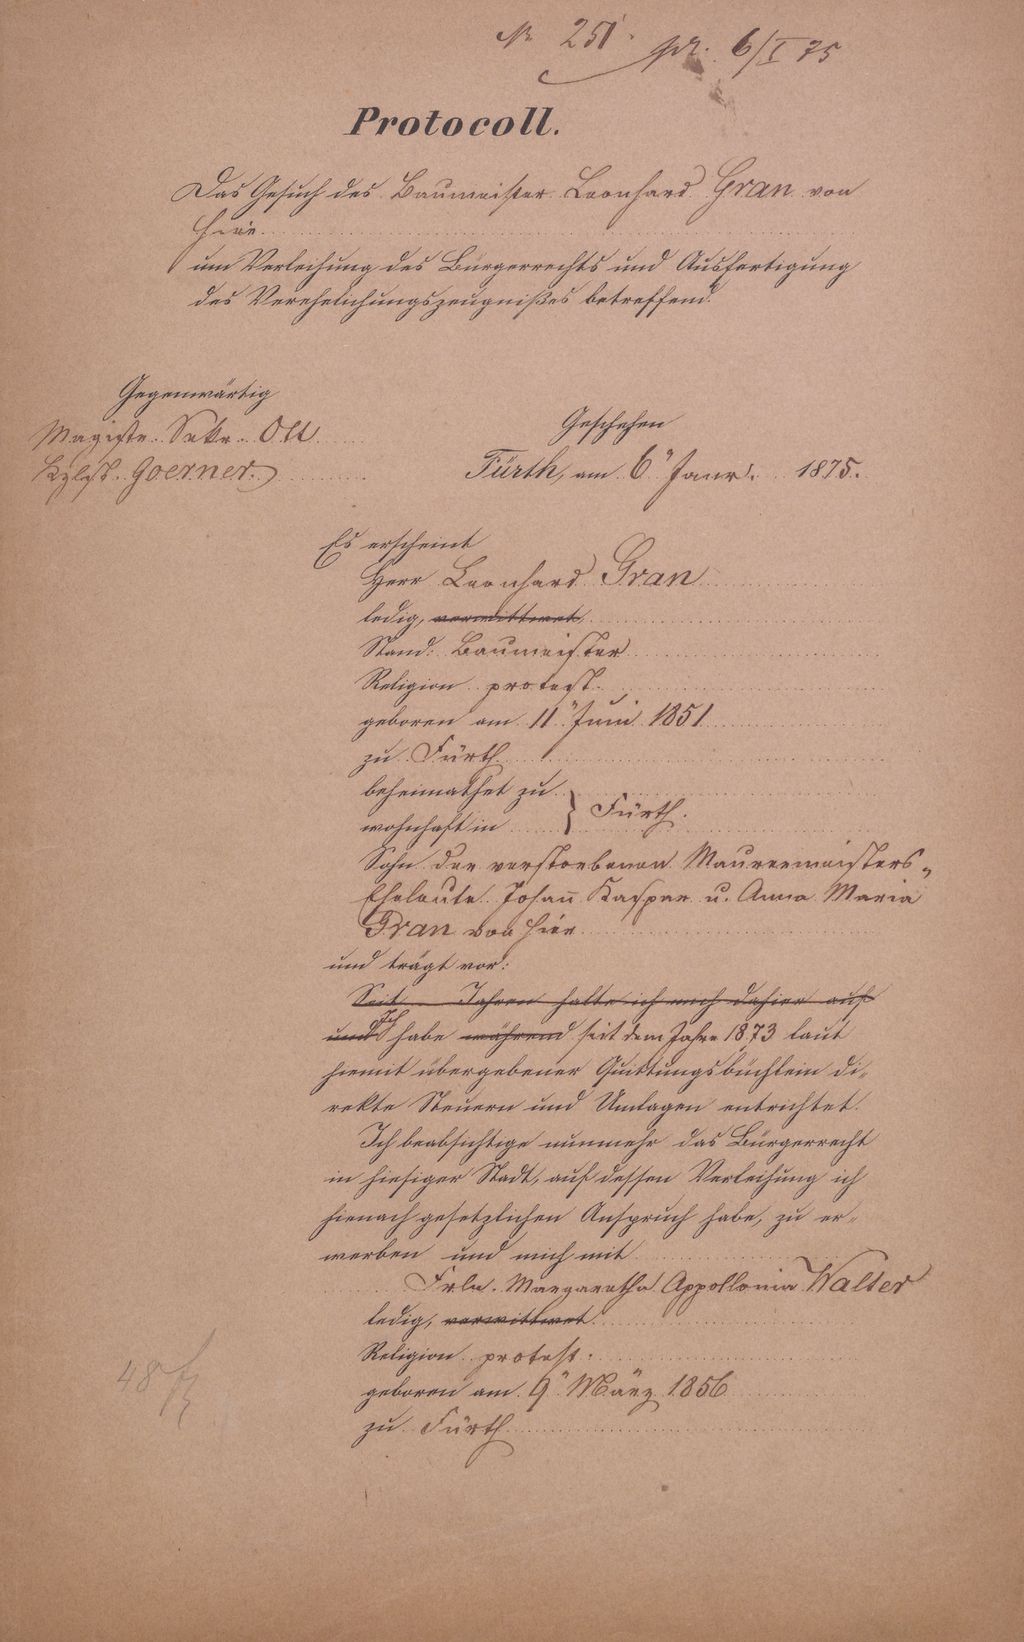 No 251. pr. 6/I 75
Protocoll.
Das Gesuch des Baumeister Leonhard Gran von
hier
um Verleihung des Bürgerrechts und Ausfertigung
des Verehelichungszeugnißes betreffend.
Gegenwärtig
Magistr. Sekr. Ott
Goerner
Geschehen
Fürth, am 6" Janr. 1875.
Es erscheint
Herr Leonhard Gran
ledig, verwittwet
Stand: Baumeister
Religion protest.
geboren am 11" Juni 1851
zu Fürth
beheimathet zu
wohnhaft in } Fürth.
Sohn der verstorbenen Maurermeisters-
Eheleute Johann Kaspar u. Anna Maria
Gran von hier
und trägt vor:
Seit Jahren halte ich mich dahier auf
und Ich habe während seit dem Jahre 1873 laut
hiemit übergebener Quittungsbüchlein di-
rekte Steuern und Umlagen entrichtet.
Ich beabsichtige nunmehr das Bürgerrecht
in hiesiger Stadt, auf dessen Verleihung ich
hienach gesetzlichen Anspruch habe, zu er-
werben und mich mit
Frln. Margaretha Appollonia Walter
ledig, verwittwet
Religion protest.
geboren am 9" März 1856
zu Fürth
48